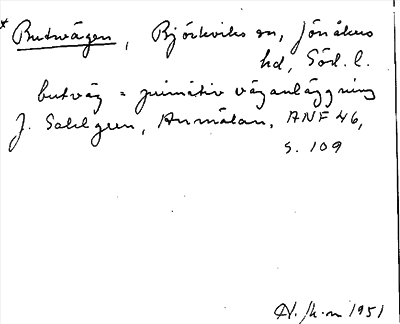 * Butvägen, Björkviks sn, Jönåkers
hd, Söd. l.
butväg = primitivväganläggning
J. Sahlgren, Anmälan. ANF 46,
s. 109
1951